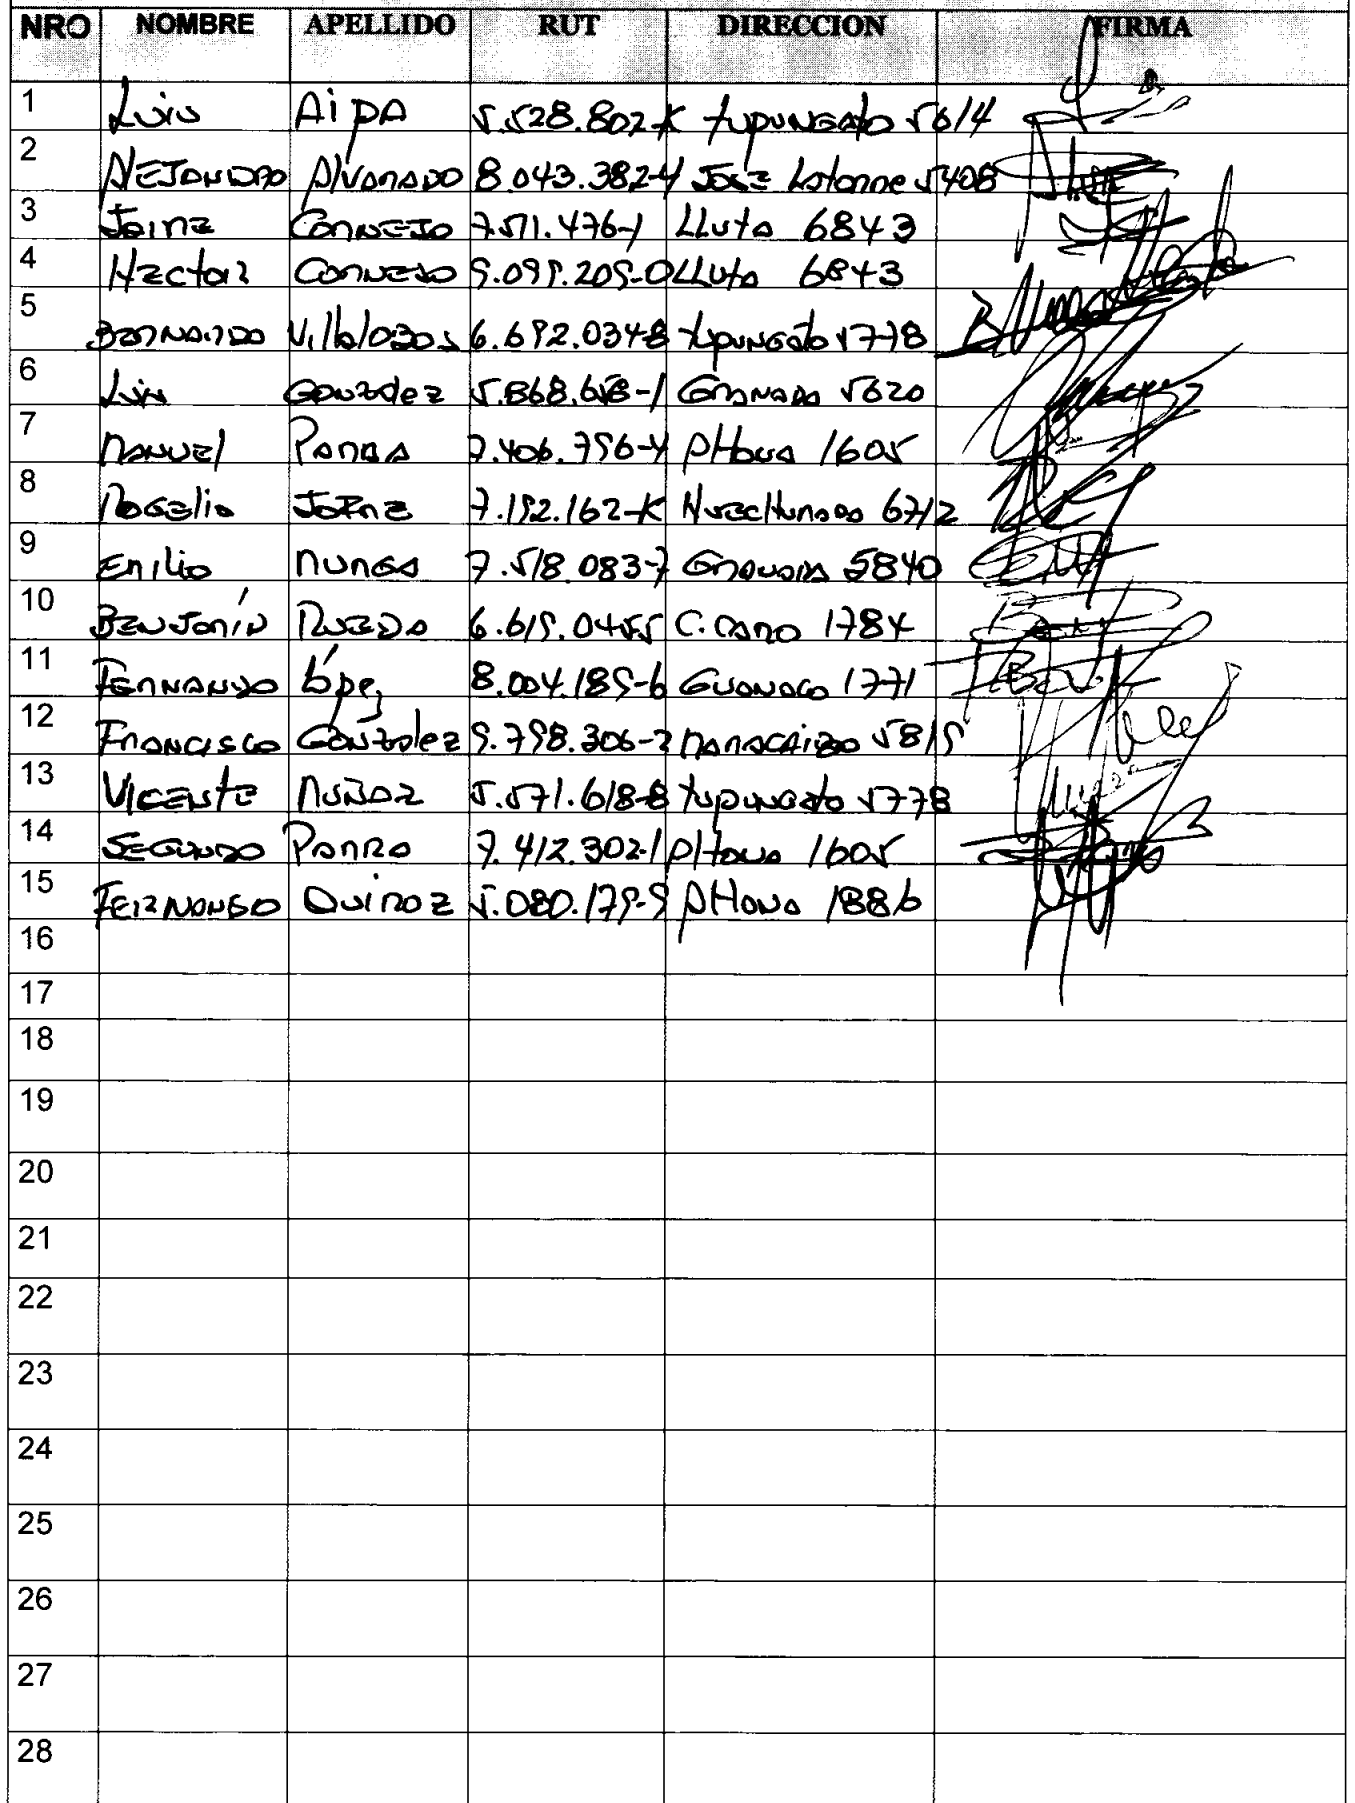 NRO NOMBRE APELLIDO RUT DIRECCION FIRMA
1 Luis Aipa 5.528.802-K tupungato 5614
2 Alejandro Alvarado 8.043.382-4 José Latorre 5408
3 Jaime Cornejo 7.511.476-1 LLuta 6843
4 Hector Cornejo 9.099.209-0 LLuta 6843
5 Bernardo Villalobos 6.692.034-8 tupungato 5778
6 Luis Gonzalez 5.868.658-1 Granada 5620
7 Manuel Parra 7.406.796-4 1605
8 Rogelio 7.192.162-K 6712
9 Emilio 7.518.083-7 Granada 5840
10 Benjamín Rueda 6.619.045-5 C. Caro 1784
11 Fernando López 8.004.189-6 Guanaco 1771
12 Francisco González 9.798.306-2 Maracaibo 5819
13 Vicente Muñoz 5.571.618-8 tupungato 5778
14 Segundo Parra 7.412.302-1 1605
15 Fernando Quiroz 5.080.179-9 1886
16
17
18
19
20
21
22
23
24
25
26
27
28